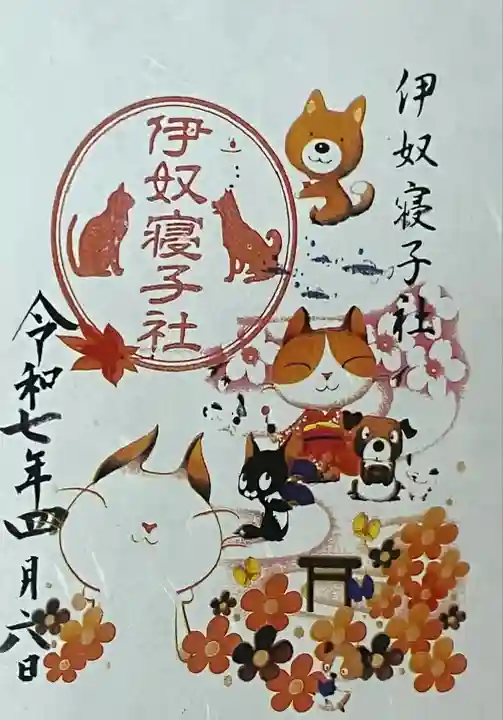 伊奴寝子社
伊奴寝子社
令和七年四月六日